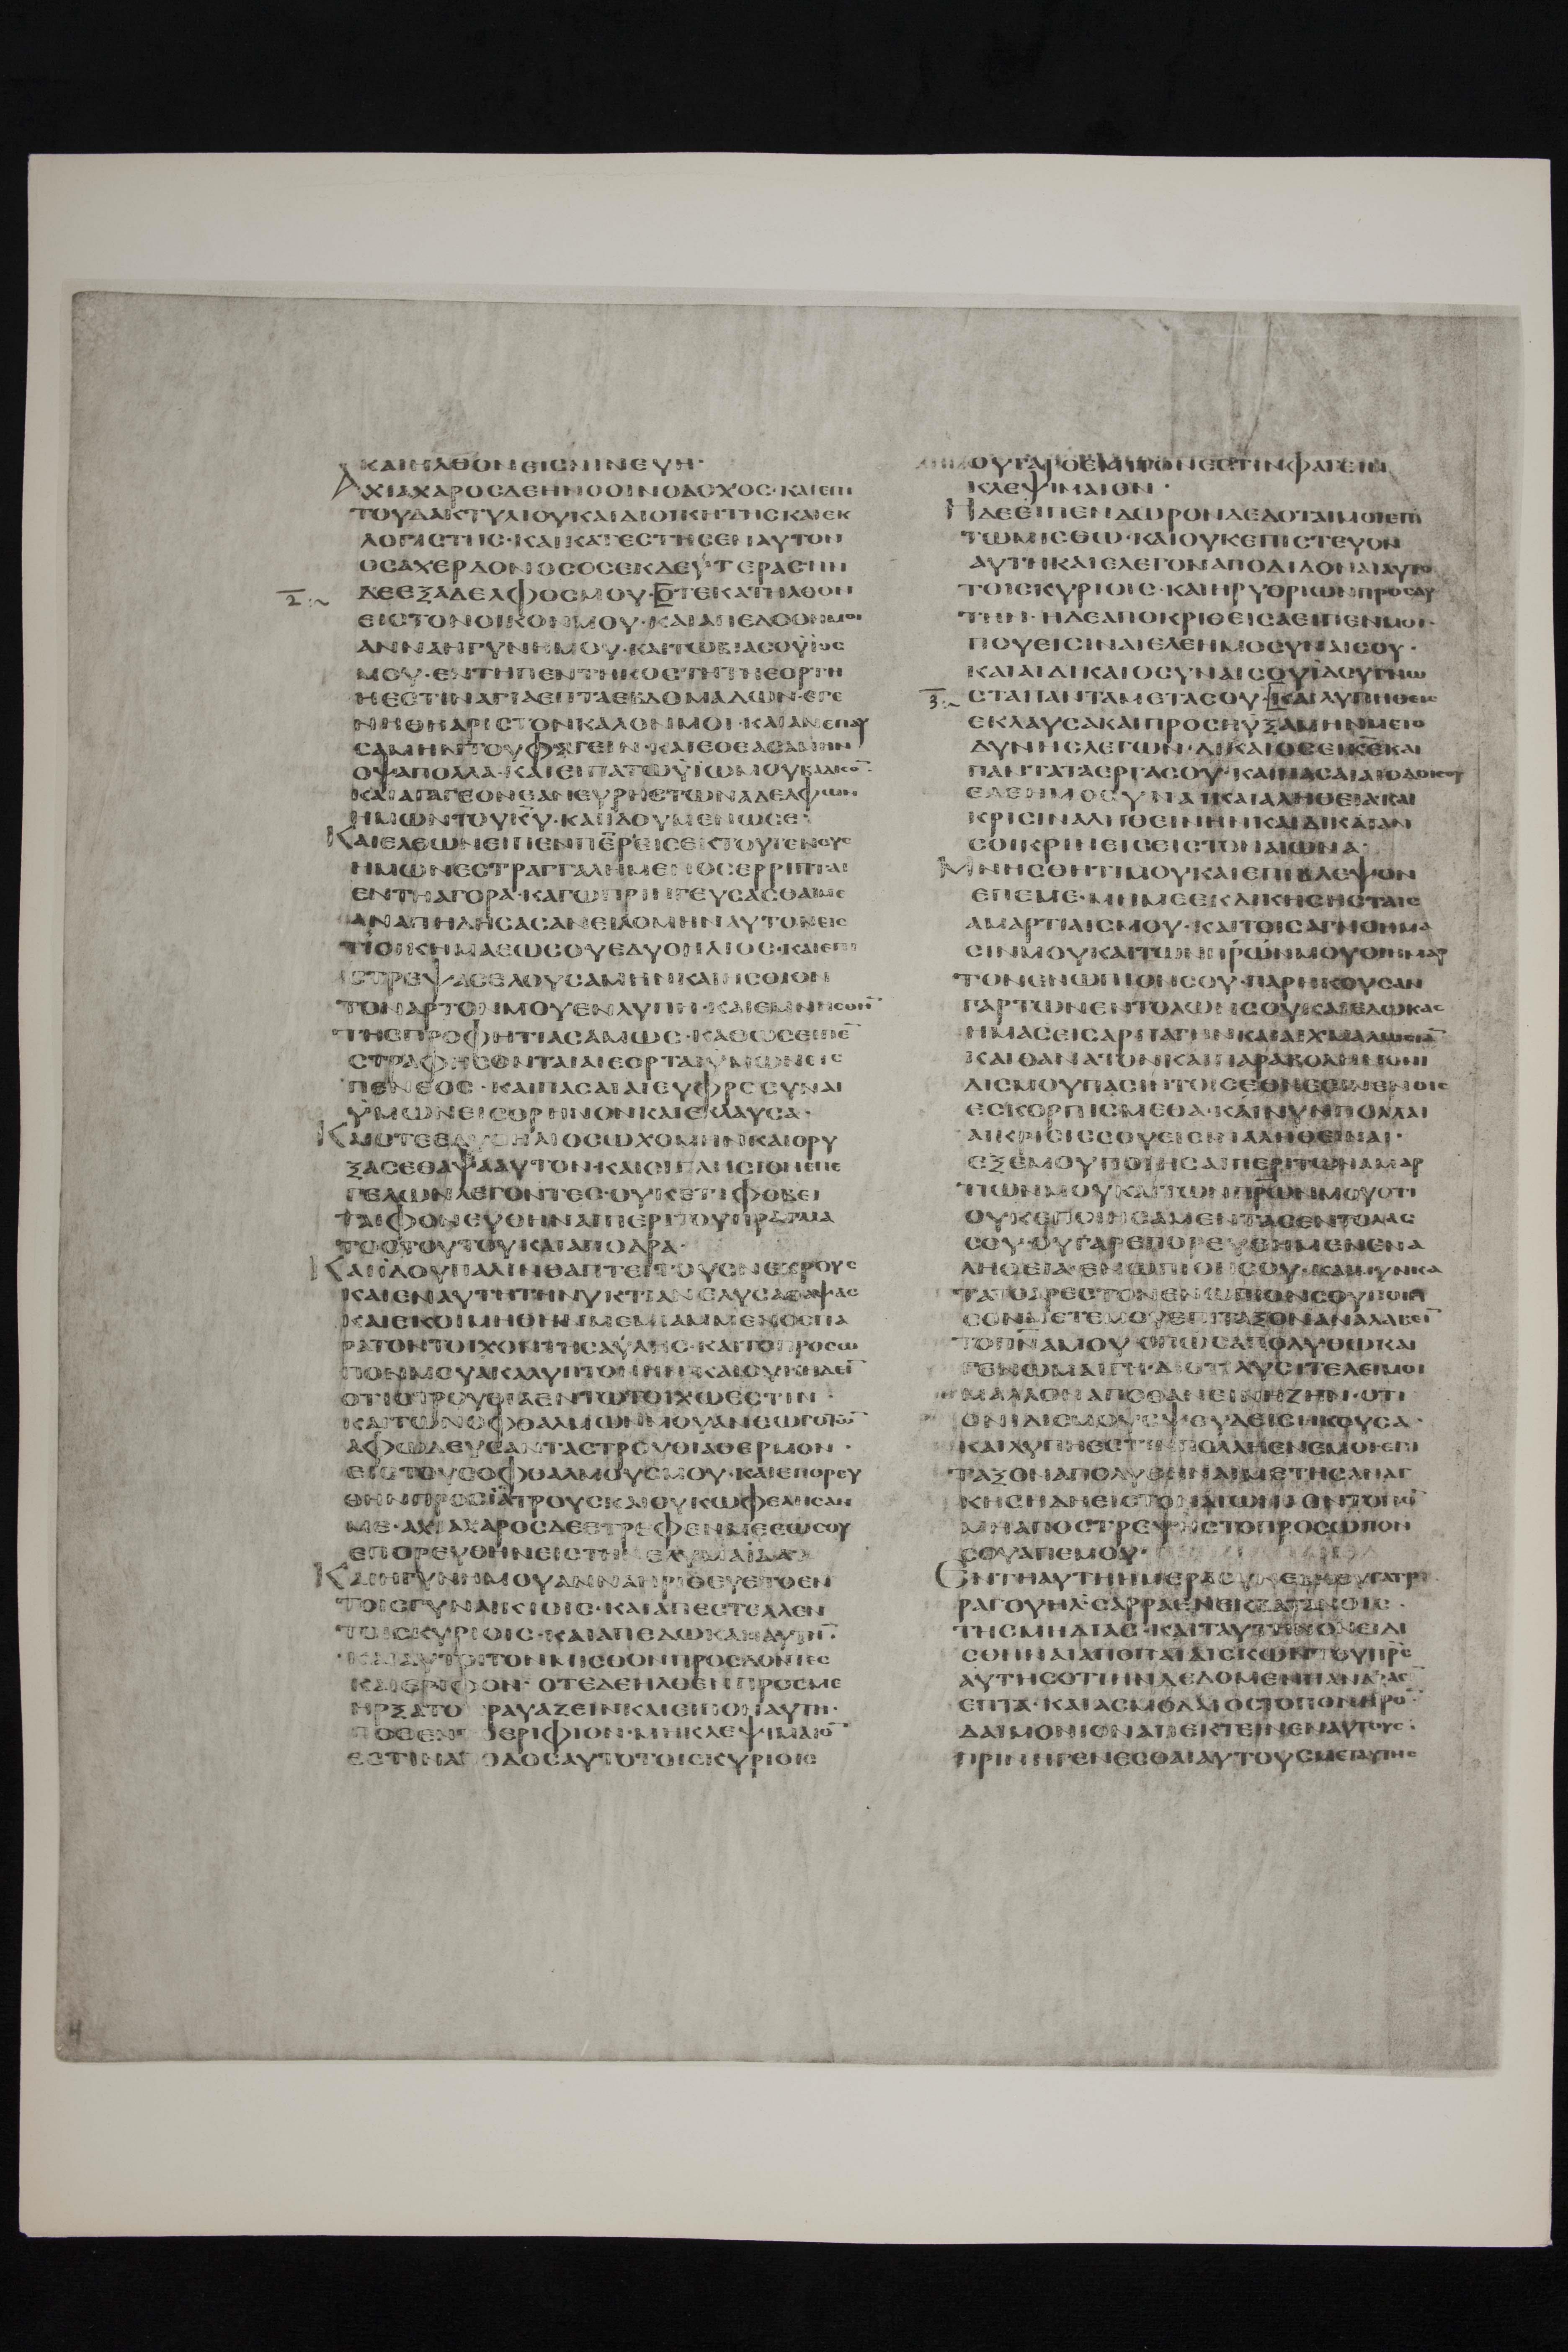 ΚΑΙΗΛΘΟΝΕΙCΝΙΝΕΥΗ·
ΑΧΙΑΧΑΡΟCΔΕΗΝΟΟΙΝΟΔΟΧΟC·ΚΑΙΕΠΙ
ΤΟΥΔΑΚΤΥΛΙΟΥΚΑΙΔΙΟΙΚΗΤΗCΚΑΙΕΚ
ΛΟΓΙCΤΗC·ΚΑΙΚΑΤΕCΤΗCΕΝΑΥΤΟΝ
ΟCΑΧΕΡΔΟΝΟCΟCΕΚΔΕΥΤΕΡΑCΗΝ
2:~ ΔΕΕΞΑΔΕΛΦΟCΜΟΥ·ΟΤΕΚΑΤΗΛΘΟΝ
ΕΙCΤΟΝΟΙΚΟΝΜΟΥ·ΚΑΙΑΠΕΔΟΘΗΜΟΙ
ΑΝΝΑΗΓΥΝΗΜΟΥ·ΚΑΙΤΩΒΙΑCΟΫΙΟC
ΜΟΥ·ΕΝΤΗΠΕΝΤΗΚΟCΤΗΤΗΕΟΡΤΗ
ΗΕCΤΙΝΑΓΙΑΕΠΤΑΕΒΔΟΜΑΔΩΝ·ΕΓΕ
ΝΗΘΗΑΡΙCΤΟΝΚΑΛΟΝΜΟΙ·ΚΑΙΑΝΕΠΑΥ
CΑΜΗΝΤΟΥΦΑΓΕΙΝ·ΚΑΙΕΘΕΑCΑΜΗΝ
ΟΨΑΠΟΛΛΑ·ΚΑΙΕΙΠΑΤΩΫΙΩΜΟΥΒΑΔΙCΟ̅
ΚΑΙΑΓΑΓΕΟΝΕΑΝΕΥΡΗCΤΩΝΑΔΕΛΦΩΝ
ΗΜΩΝΤΟΥΚ̅Υ̅·ΚΑΙΪΔΟΥΜΕΝΩCΕ·
ΚΑΙΕΛΘΩΝΕΙΠΕΝΠΕ̅Ρ̅ΕΙCΕΚΤΟΥΓΕΝΟΥC
ΗΜΩΝΕCΤΡΑΓΓΑΛΗΜΕΝΟCΕΡΡΙΠΤΑΙ
ΕΝΤΗΑΓΟΡΑ·ΚΑΓΩΠΡΙΝΓΕΥCΑCΘΑΙΜΕ
ΑΝΑΠΗΔΗCΑCΑΝΕΙΛΟΜΗΝΑΥΤΟΝΕΙC
ΤΙΟΙΚΗΜΑΕΩCΟΥΕΔΥΟΗΛΙΟC·ΚΑΙΕΠΙ
CΤΡΕΨΑCΕΛΟΥCΑΜΗΝΚΑΙΗCΘΙΟΝ
ΤΟΝΑΡΤΟΝΜΟΥΕΝΛΥΠΗ·ΚΑΙΕΜΝΗCΘΗ̅
ΤΗCΠΡΟΦΗΤΙΑCΑΜΩC·ΚΑΘΩCΕΙΠΕ̅
CΤΡΑΦΗCΟΝΤΑΙΑΙΕΟΡΤΑΙΫΜΩΝΕΙC
ΠΕΝΘΟC·ΚΑΙΠΑCΑΙΑΙΕΥΦΡΟCΥΝΑΙ
ΫΜΩΝΕΙCΘΡΗΝΟΝΚΑΙΕΚΛΑΥCΑ·
ΚΑΙΟΤΕΕΔΥΟΗΛΙΟCΩΧΟΜΗΝΚΑΙΟΡΥ
ΞΑCΕΘΑΨΑΑΥΤΟΝ·ΚΑΙΟΙΠΛΗCΙΟΝΕΠΕ
ΓΕΛΩΝΛΕΓΟΝΤΕC·ΟΥΚΕΤΙΦΟΒΕΙ
ΤΑΙΦΟΝΕΥΘΗΝΑΙΠΕΡΙΤΟΥΠΡΑΓΜΑ
ΤΟCΤΟΥΤΟΥΚΑΙΑΠΕΔΡΑ·
ΚΑΙΪΔΟΥΠΑΛΙΝΘΑΠΤΕΙΤΟΥCΝΕΚΡΟΥC
ΚΑΙΕΝΑΥΤΗΤΗΝΥΚΤΙΑΝΕΛΥCΑΘΑΨΑC
ΚΑΙΕΚΟΙΜΗΘΗΝΜΕΜΙΑΜΜΕΝΟCΠΑ
ΡΑΤΟΝΤΟΙΧΟΝΤΗCΑΥΛΗC·ΚΑΙΤΟΠΡΟCΩ
ΠΟΝΜΟΥΑΚΑΛΥΠΤΟΝΗΝ·ΚΑΙΟΥΚΗΔΕΙ̅
ΟΤΙCΤΡΟΥΘΙΑΕΝΤΩΤΟΙΧΩΕCΤΙΝ·
ΚΑΙΤΩΝΟΦΘΑΛΜΩΝΜΟΥΑΝΕΩΓΟΤΩ̅
ΑΦΩΔΕΥCΑΝΤΑCΤΡΟΥΘΙΑΘΕΡΜΟΝ·
ΕΙCΤΟΥCΟΦΘΑΛΜΟΥCΜΟΥ·ΚΑΙΕΠΟΡΕΥ
ΘΗΝΠΡΟCΪΑΤΡΟΥCΚΑΙΟΥΚΩΦΕΛΗCΑΝ
ΜΕ·ΑΧΙΑΧΑΡΟCΔΕΕΤΡΕΦΕΝΜΕΕΩCΟΥ
ΕΠΟΡΕΥΘΗΝΕΙCΤΗΝΕΛΥΜΑΪΔΑ
ΚΑΙΗΓΥΝΗΜΟΥΑΝΝΑΗΡΙΘΕΥΕΤΟΕΝ
ΤΟΙCΓΥΝΑΙΚΙΟΙC·ΚΑΙΑΠΕCΤΕΛΛΕΝ
ΤΟΙCΚΥΡΙΟΙC·ΚΑΙΑΠΕΔΩΚΑΝΑΥΤΗ·
ΚΑΙΑΥΤΟΙΤΟΝΜΙCΘΟΝΠΡΟCΔΟΝΤΕC
ΚΑΙΕΡΙΦΟΝ·ΟΤΕΔΕΗΛΘΕΝΠΡΟCΜΕ
ΗΡΞΑΤΟ ΡΑΥΑΖΕΙΝΚΑΙΕΙΠΟΝΑΥΤΗ·
ΠΟΘΕΝΤ ΕΡΙΦΙΟΝ·ΜΗΚΛΕΨΙΜΑΙΟ̅
ΕCΤΙΝΑΠ ΔΟCΑΥΤΟΤΟΙCΚΥΡΙΟΙC
ΟΥΓΑΡΘΕΜΙΤΟΝΕCΤΙΝΦΑΓΕΙΝ
ΚΛΕΨΙΜΑΙΟΝ·
ΗΔΕΕΙΠΕΝΔΩΡΟΝΔΕΔΟΤΑΙΜΟΙΕΠΙ
ΤΩΜΙCΘΩ·ΚΑΙΟΥΚΕΠΙCΤΕΥΟΝ
ΑΥΤΗΚΑΙΕΛΕΓΟΝΑΠΟΔΙΔΟΝΑΙΑΥΤΟ
ΤΟΙCΚΥΡΙΟΙC·ΚΑΙΗΡΥΘΡΙΩΝΠΡΟCΑΥ
ΤΗΝ·ΗΔΕΑΠΟΚΡΙΘΕΙCΑΕΙΠΕΝΜΟΙ·
ΠΟΥΕΙCΙΝΑΙΕΛΕΗΜΟCΥΝΑΙCΟΥ·
ΚΑΙΑΙΔΙΚΑΙΟCΥΝΑΙCΟΥΪΔΟΥΓΝΩ
3:~ CΤΑΠΑΝΤΑΜΕΤΑCΟΥ·ΚΑΙΛΥΠΗΘΕΙC
ΕΚΛΑΥCΑΚΑΙΠΡΟCΗΥΞΑΜΗΝΜΕΤΟ
ΔΥΝΗCΛΕΓΩΝ·ΔΙΚΑΙΟCΕΙΚ̅Ε̅ΚΑΙ
ΠΑΝΤΑΤΑΕΡΓΑCΟΥ·ΚΑΙΠΑCΑΙΑΙΟΔΟΙCΟΥ
ΕΛΕΗΜΟCΥΝΑΙΚΑΙΑΛΗΘΕΙΑΚΑΙ
ΚΡΙCΙΝΑΛΗΘΕΙΝΗΝΚΑΙΔΙΚΑΙΑΝ
CΟΙΚΡΙΝΕΙCΕΙCΤΟΝΑΙΩΝΑ·
ΜΝΗCΘΗΤΙΜΟΥΚΑΙΕΠΙΒΛΕΨΟΝ
ΕΠΕΜΕ·ΜΗΜΕΕΚΔΙΚΗCΗCΤΑΙC
ΑΜΑΡΤΙΑΙCΜΟΥ·ΚΑΙΤΟΙCΑΓΝΟΗΜΑ
CΙΝΜΟΥΚΑΙΤΩΝΠ̅Ρ̅ΩΝΜΟΥΟΙΗΜΑΡ
ΤΟΝΕΝΩΠΙΟΝCΟΥ·ΠΑΡΗΚΟΥCΑΝ
ΓΑΡΤΩΝΕΝΤΟΛΩΝCΟΥ·ΚΑΙΕΔΩΚΑC
ΗΜΑCΕΙCΑΡΠΑΓΗΝΚΑΙΑΙΧΜΑΛΩCΙΑ̅
ΚΑΙΘΑΝΑΤΟΝΚΑΙΠΑΡΑΒΟΛΗΝΟΝΙ
ΔΙCΜΟΥΠΑCΙΝΤΟΙCΕΘΝΕCΙΝΕΝΟΙC
ΕCΚΟΡΠΙCΜΕΘΑ·ΚΑΙΝΥΝΠΟΛΛΑΙ
ΑΙΚΡΙCΙCCΟΥΕΙCΙΝΑΛΗΘΕΙΝΑΙ·
ΕΞΕΜΟΥΠΟΙΗCΑΙΠΕΡΙΤΩΝΑΜΑΡ
ΤΙΩΝΜΟΥΚΑΙΤΩΝΠ̅Ρ̅ΩΝΜΟΥΟΤΙ
ΟΥΚΕΠΟΙΗCΑΜΕΝΤΑCΕΝΤΟΛΑC
CΟΥ·ΟΥΓΑΡΕΠΟΡΕΥΘΗΜΕΝΕΝΑ
ΛΗΘΕΙΑΕΝΩΠΙΟΝCΟΥ·ΚΑΙΝΥΝΚΑ
ΤΑΤΟΑΡΕCΤΟΝΕΝΩΠΙΟΝCΟΥΠΟΙΗ
CΟΝΜΕΤΕΜΟΥΕΠΙΤΑΞΟΝΑΝΑΛΑΒΕΙ̅
ΤΟΠ̅Ν̅ΑΜΟΥΟΠΩCΑΠΟΛΥΘΩΚΑΙ
ΓΕΝΩΜΑΙΓΗ·ΔΙΟΤΙΛΥCΙΤΕΛΕΙΜΟΙ
ΜΑΛΛΟΝΑΠΟΘΑΝΕΙΝΗΖΗΝ·ΟΤΙ
ΟΝΙΔΙCΜΟΥCΨΕΥΔΕΙCΗΚΟΥCΑ·
ΚΑΙΛΥΠΗΕCΤΙΝΠΟΛΛΗΕΝΕΜΟΙ·ΕΠΙ
ΤΑΞΟΝΑΠΟΛΥΘΗΝΑΙΜΕΤΗCΑΝΑΓ
ΚΗCΗΔΗΕΙCΤΟΝΑΙΩΝΙΟΝΤΟΠΟ̅
ΜΗΑΠΟCΤΡΕΨΗCΤΟΠΡΟCΩΠΟΝ
CΟΥΑΠΕΜΟΥ·
ΕΝΤΗΑΥΤΗΗΜΕΡΑCΥΝΕΒΗΘΥΓΑΤΡΙ
ΡΑΓΟΥΗΛCΑΡΡΑΕΝΕΚΒΑΤΑΝΟΙC·
ΤΗCΜΗΔΙΑC·ΚΑΙΤΑΥΤΗΝΟΝΕΙΔΙ
CΘΗΝΑΙΑΠΟΠΑΙΔΙCΚΩΝΤΟΥΠ̅Ρ̅C
ΑΥΤΗCΟΤΙΗΝΔΕΔΟΜΕΝΗΑΝΔΡΑC
ΕΠΤΑ·ΚΑΙΑCΜΟΔΑΙΟCΤΟΠΟΝΗΡΟ̅
ΔΑΙΜΟΝΙΟΝΑΠΕΚΤΕΙΝΕΝΑΥΤΟΥC·
ΠΡΙΝΗΓΕΝΕCΘΑΙΑΥΤΟΥCΜΕΤΑΥΤΗC